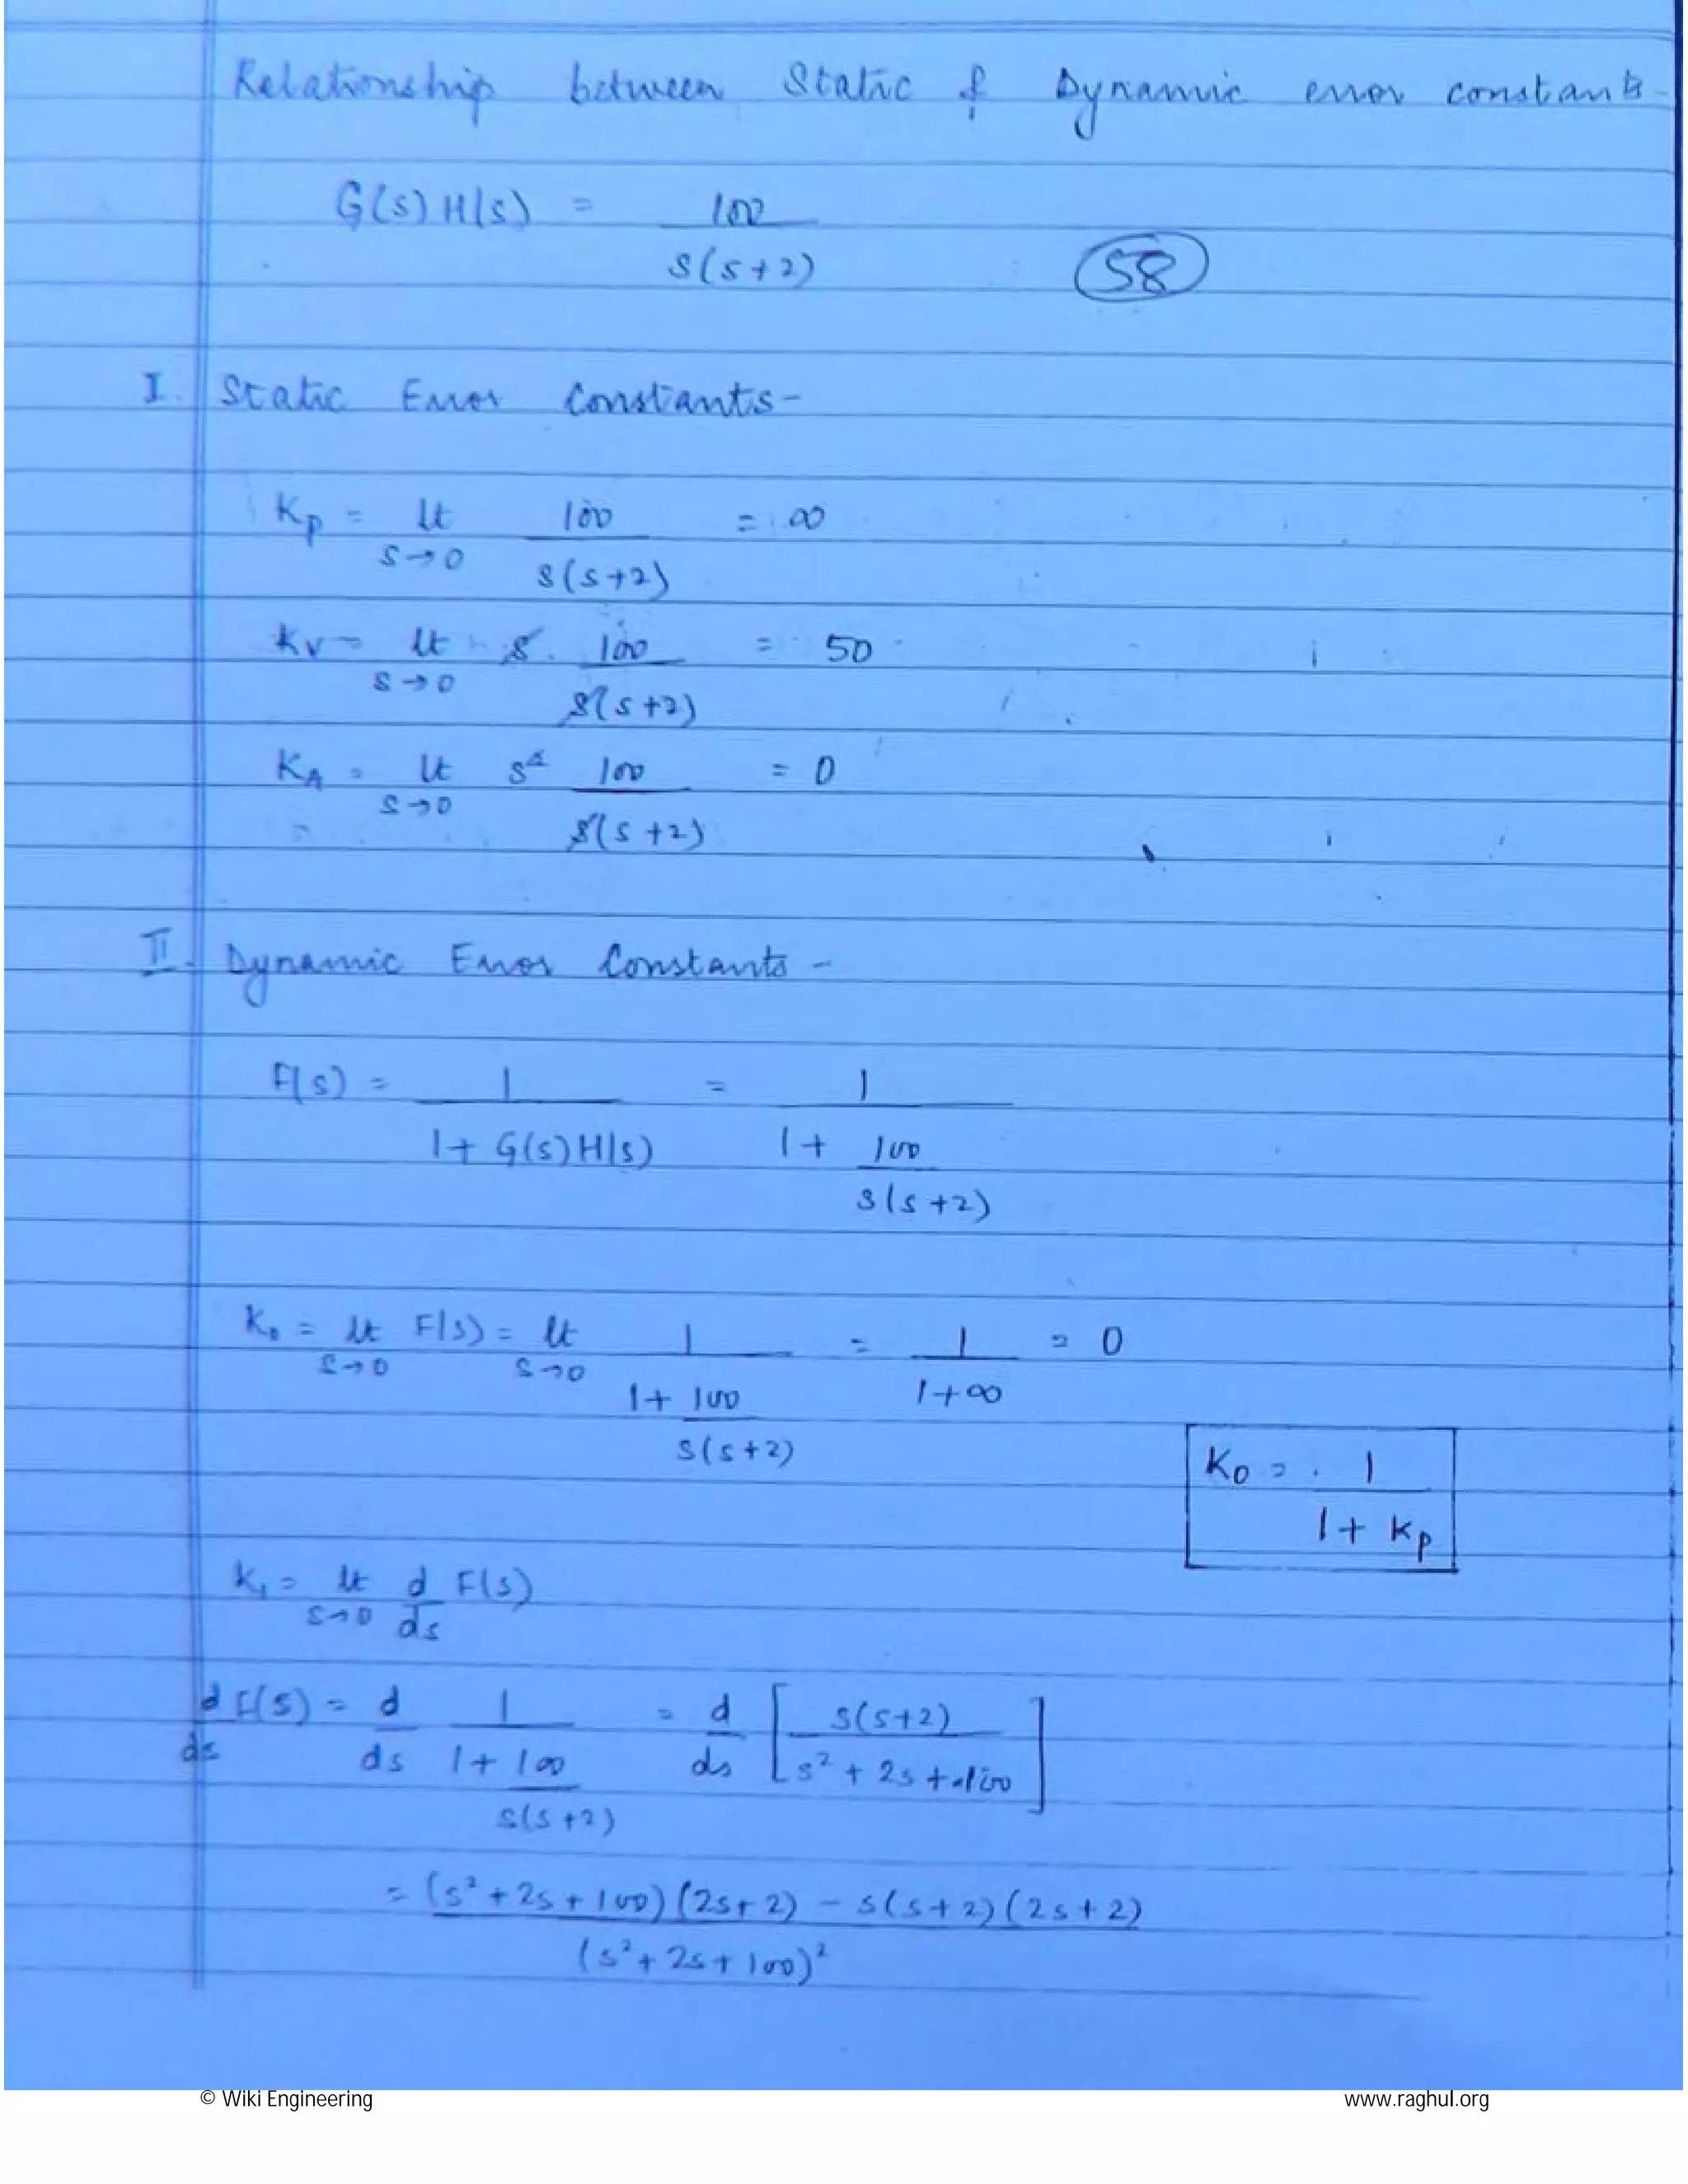 Relationship between Static & Dynamic error constants -
G(s) H(s) = 100 / s(s+2)
58
I. Static Error Constants -
Kp = lt s→0 100 / s(s+2) = ∞
Kv = lt s→0 s. 100 / s(s+2) = 50
KA = lt s→0 s² 100 / s(s+2) = 0
II. Dynamic Error Constants -
F(s) = 1 / 1+ G(s)H(s) = 1 / 1+ 100 / s(s+2)
K0 = lt s→0 F(s) = lt s→0 1 / 1+ 100 / s(s+2) = 1 / 1+∞ = 0
K0 = 1 / 1+ Kp
K1 = lt s→0 d/ds F(s)
d/ds F(s) = d/ds 1 / 1+ 100 / s(s+2) = d/ds [ s(s+2) / s² + 2s + 100 ]
= (s² + 2s + 100) (2s+2) - s(s+2) (2s+2) / (s² + 2s + 100)²
© Wiki Engineering
www.raghul.org